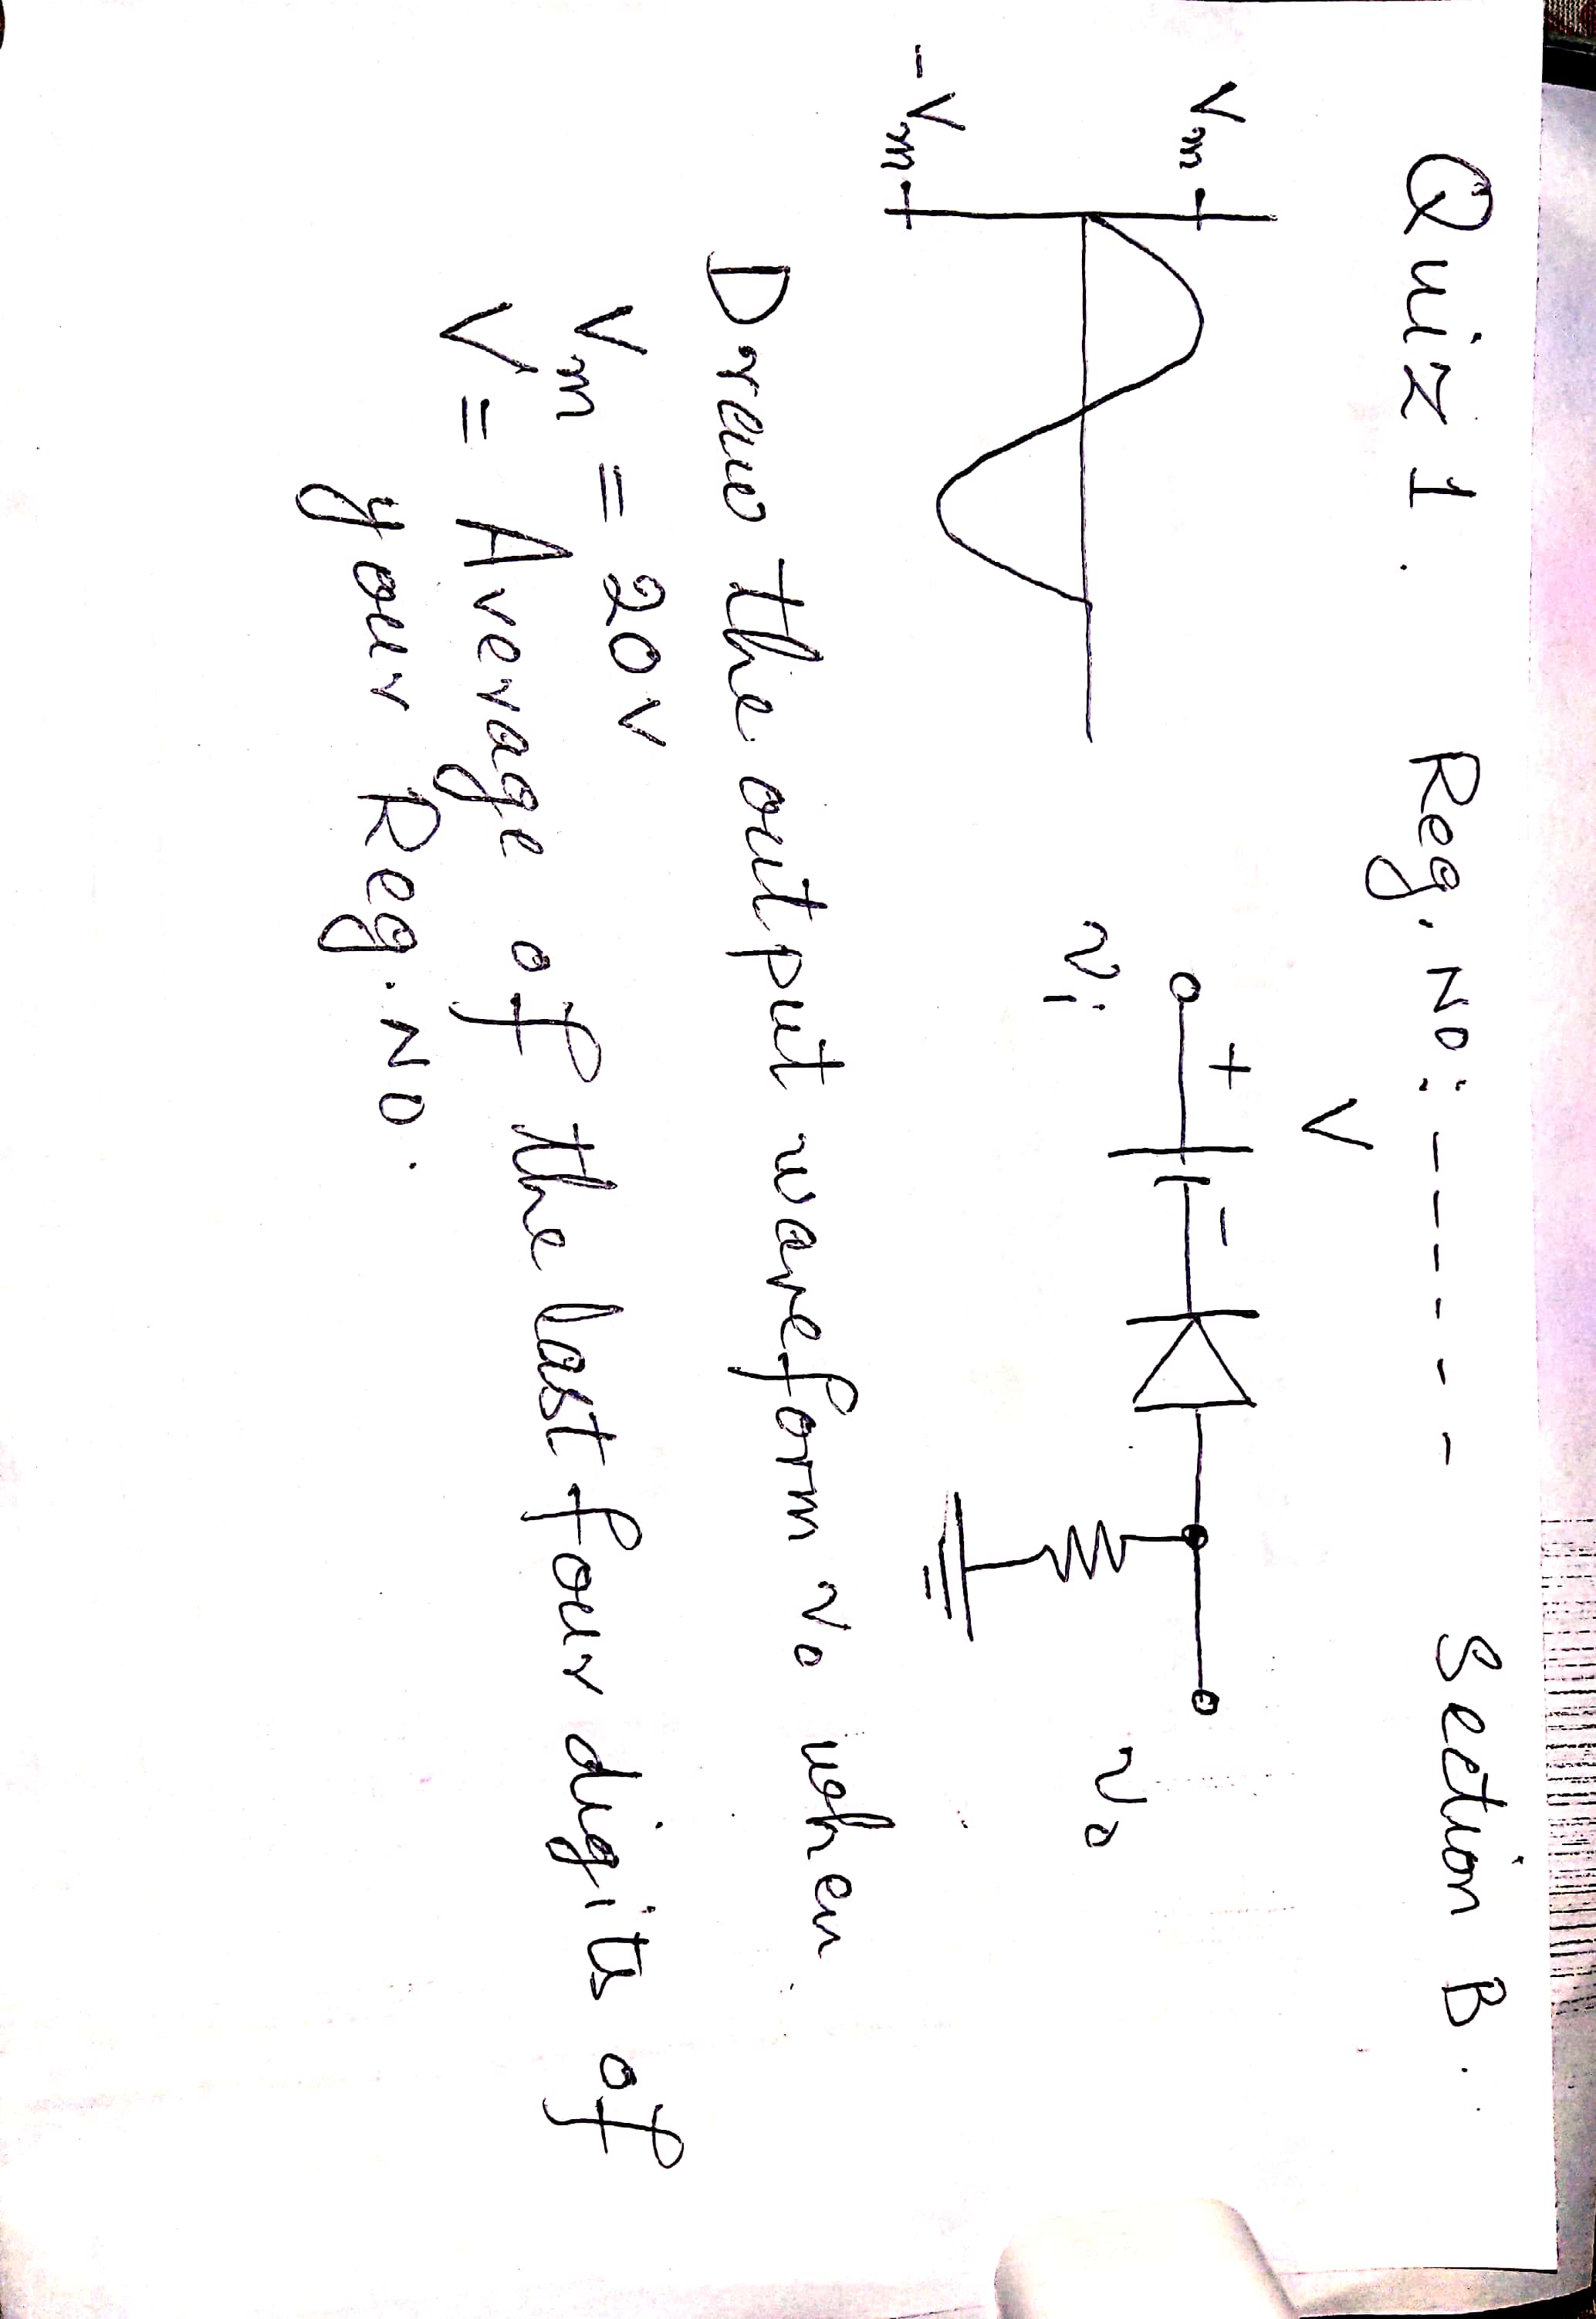 Quiz 1. Reg. No: - - - - - - Section B.
Vm
-Vm
vi
+ V -
vo
Draw the output waveform vo when
Vm = 20V
V = Average of the last four digits of
your Reg. No.